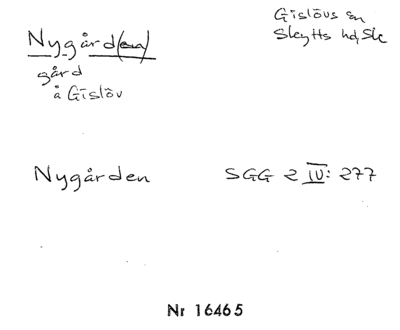 Nygård(en)
gård
å Gislöv
Gislövs sn
Skytts hd, Sk
Nygården
SGG 2 IV: 277
Nr 16465